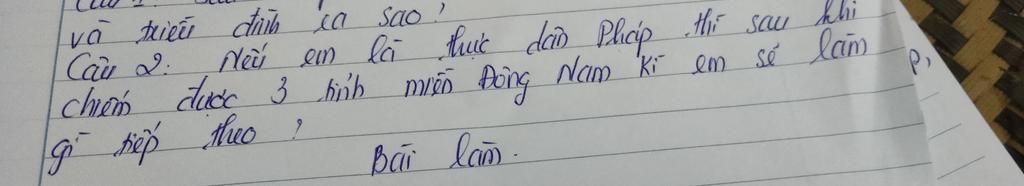 và triều đình ra sao?
Câu 2: Nếu em là thực dân Pháp thì sau khi
chiếm được 3 tỉnh miền Đông Nam Kì em sẽ làm
gì tiếp theo?
Bài làm.